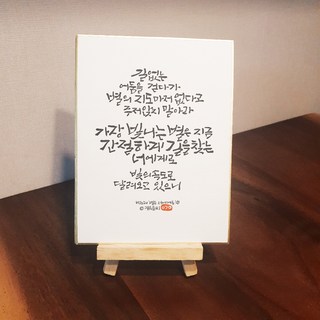 길없는
어둠을 걷다가
별의 지도마저 없다고
주저앉지 말아라
가장 빛나는 별은 지금
간절하게 길을 찾는
너에게로
빛의 속도로
달려오고 있으니